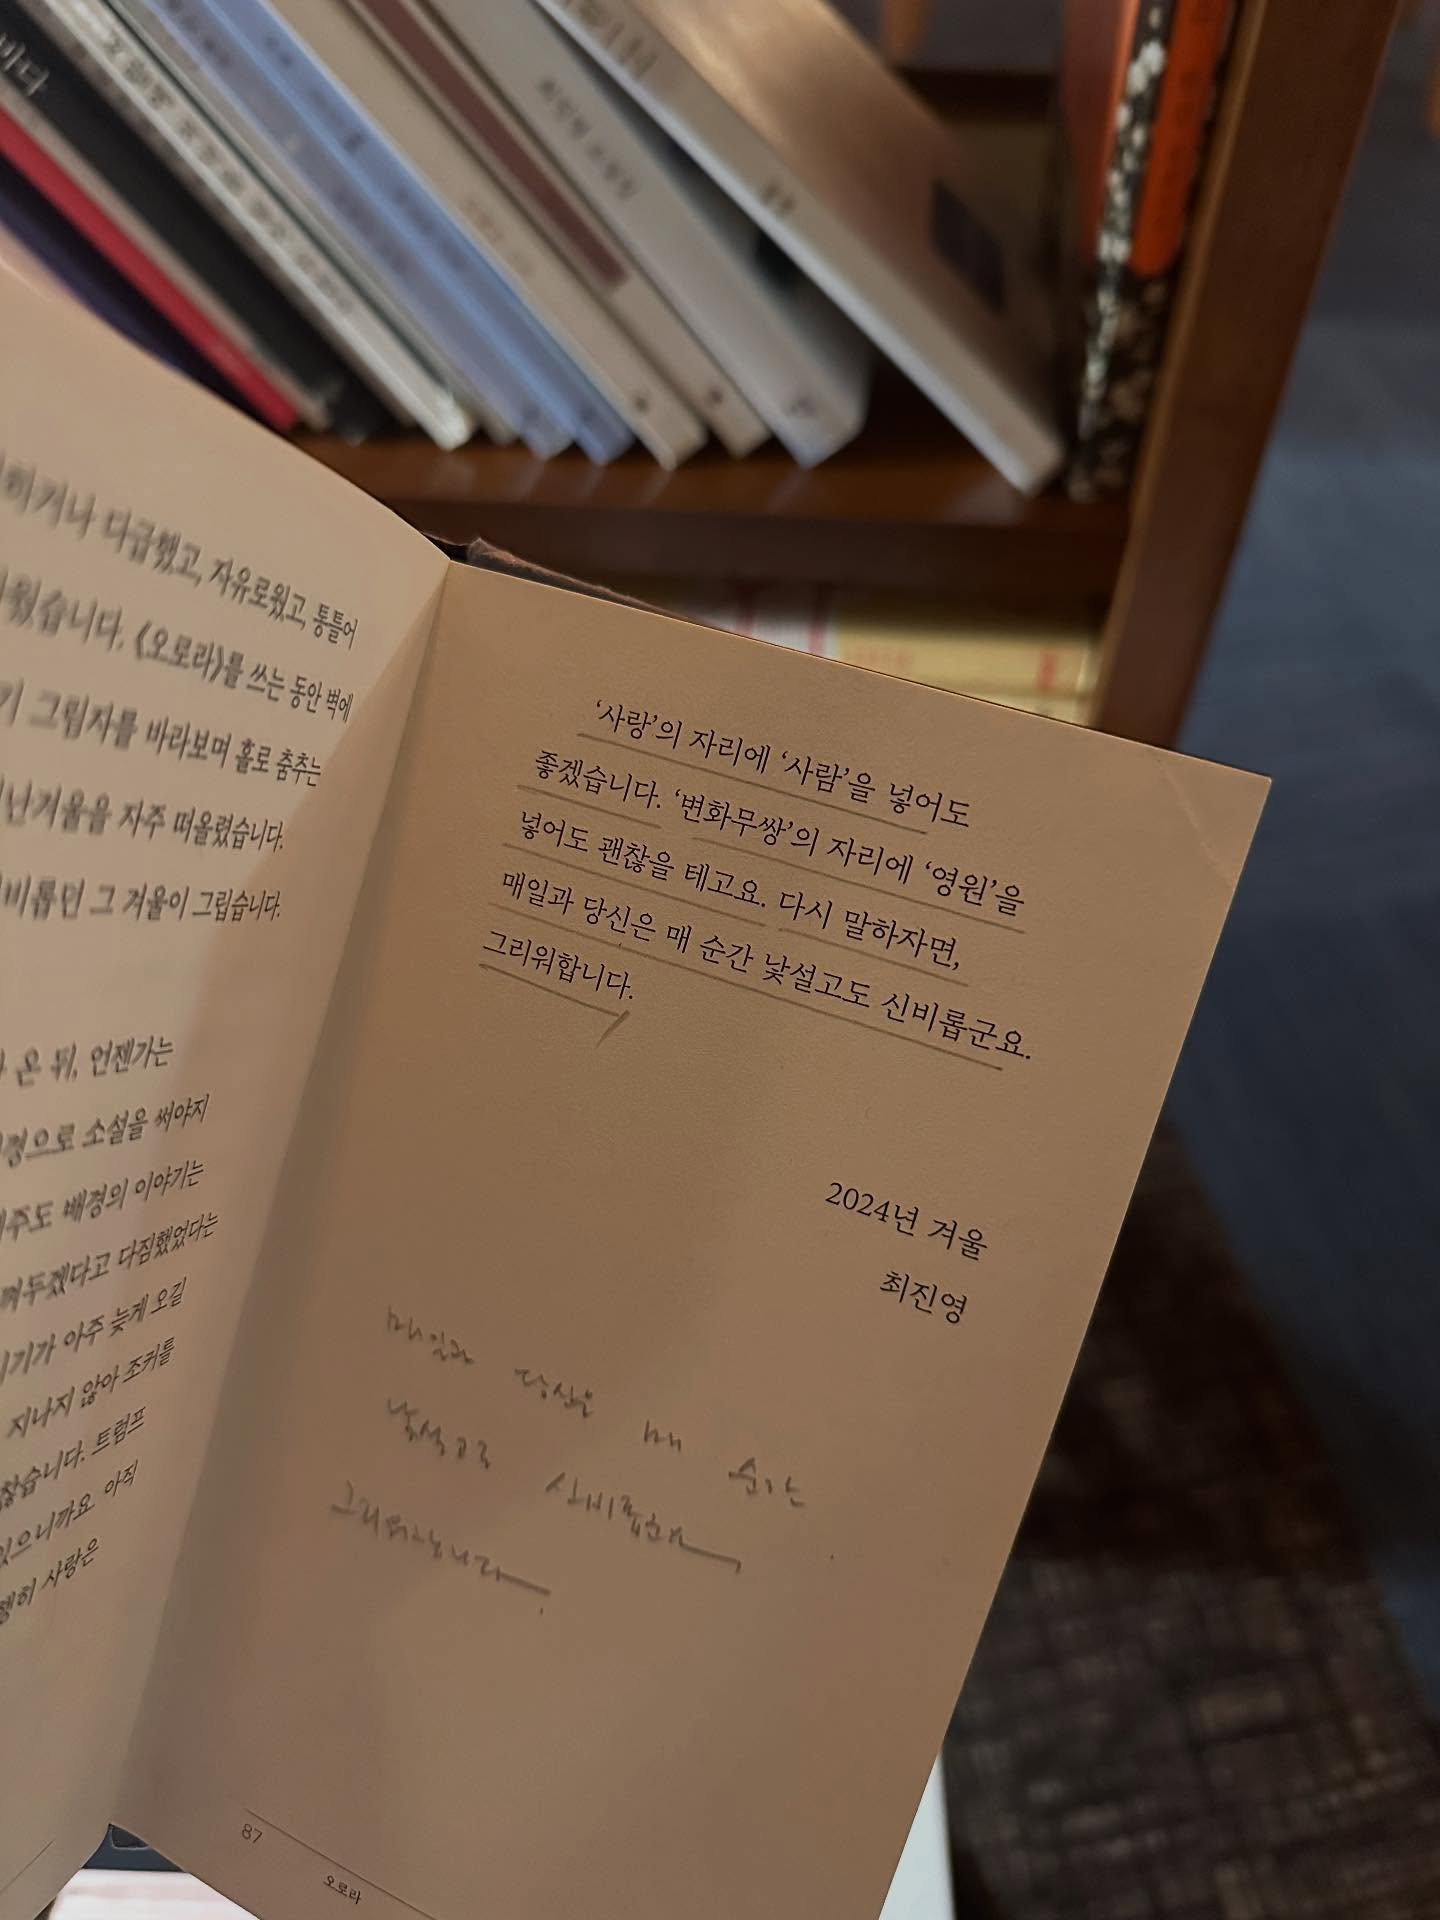 히거나 다급했고, 자유로웠고, 통틀어
웠습니다. 《오로라》를 쓰는 동안 벽에
그림자를 바라보며 홀로 춤추는
난겨울을 자주 떠올렸습니다.
비롭던 그 겨울이 그립습니다.
온 뒤, 언젠가는
경으로 소설을 써야지
제주도 배경의 이야기는
껴두겠다고 다짐했었다는
기가 아주 늦게 오길
지나지 않아 조커를
찮습니다. 트럼프
있으니까요. 아직
사랑은
‘사랑’의 자리에 ‘사람’을 넣어도
좋겠습니다. ‘변화무쌍’의 자리에 ‘영원’을
넣어도 괜찮을 테고요. 다시 말하자면,
매일과 당신은 매 순간 낯설고도 신비롭군요.
그리워합니다.
2024년 겨울
최진영
매일과 당신은 매 순간
낯설고도 신비롭군요,
그리워합니다.
87
오로라